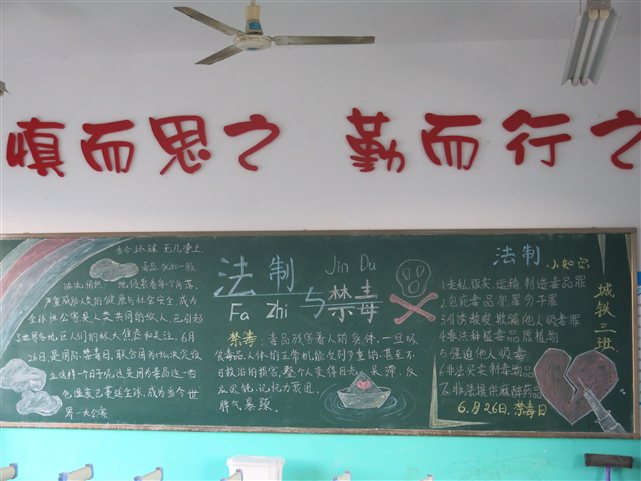 慎而思之 勤而行之
当今环球 无几净土
毒品,犹如一股
浊流,悄然地侵袭着每个角落,
严重威胁人类的健康与社会安全,成为
全球性公害是人类共同的敌人,已引起
世界各地区人们的极大焦虑和关注,6月
26日是国际禁毒日,联合国为什么决定设
立这样一个日子呢这是因为毒品这一白
色瘟疫已蔓延全球,成为当今世
界一大公害
法制
Fa zhi
与
Jin Du
禁毒
禁毒 毒品残害着人的身体,一旦吸
食毒品人体的正常机能受到严重的,甚至不
可救治的损害,整个人变得目光呆滞,反
应迟钝,记忆力衰退,
脾气暴躁.
法制
小知识
1走私,贩卖,运输,制造毒品罪
2包庇毒品犯罪分子罪
3引诱教唆欺骗他人吸毒罪
4非法种植毒品原植物
5强迫他人吸毒
6非法买卖制毒物品
7非法提供麻醉药品
6月26日.禁毒日
城铁三班